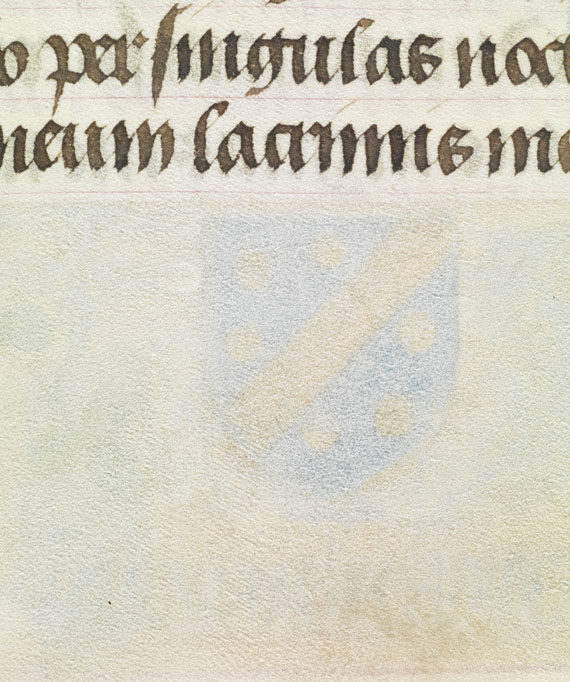 o per singulas noct
meum lacrimis me